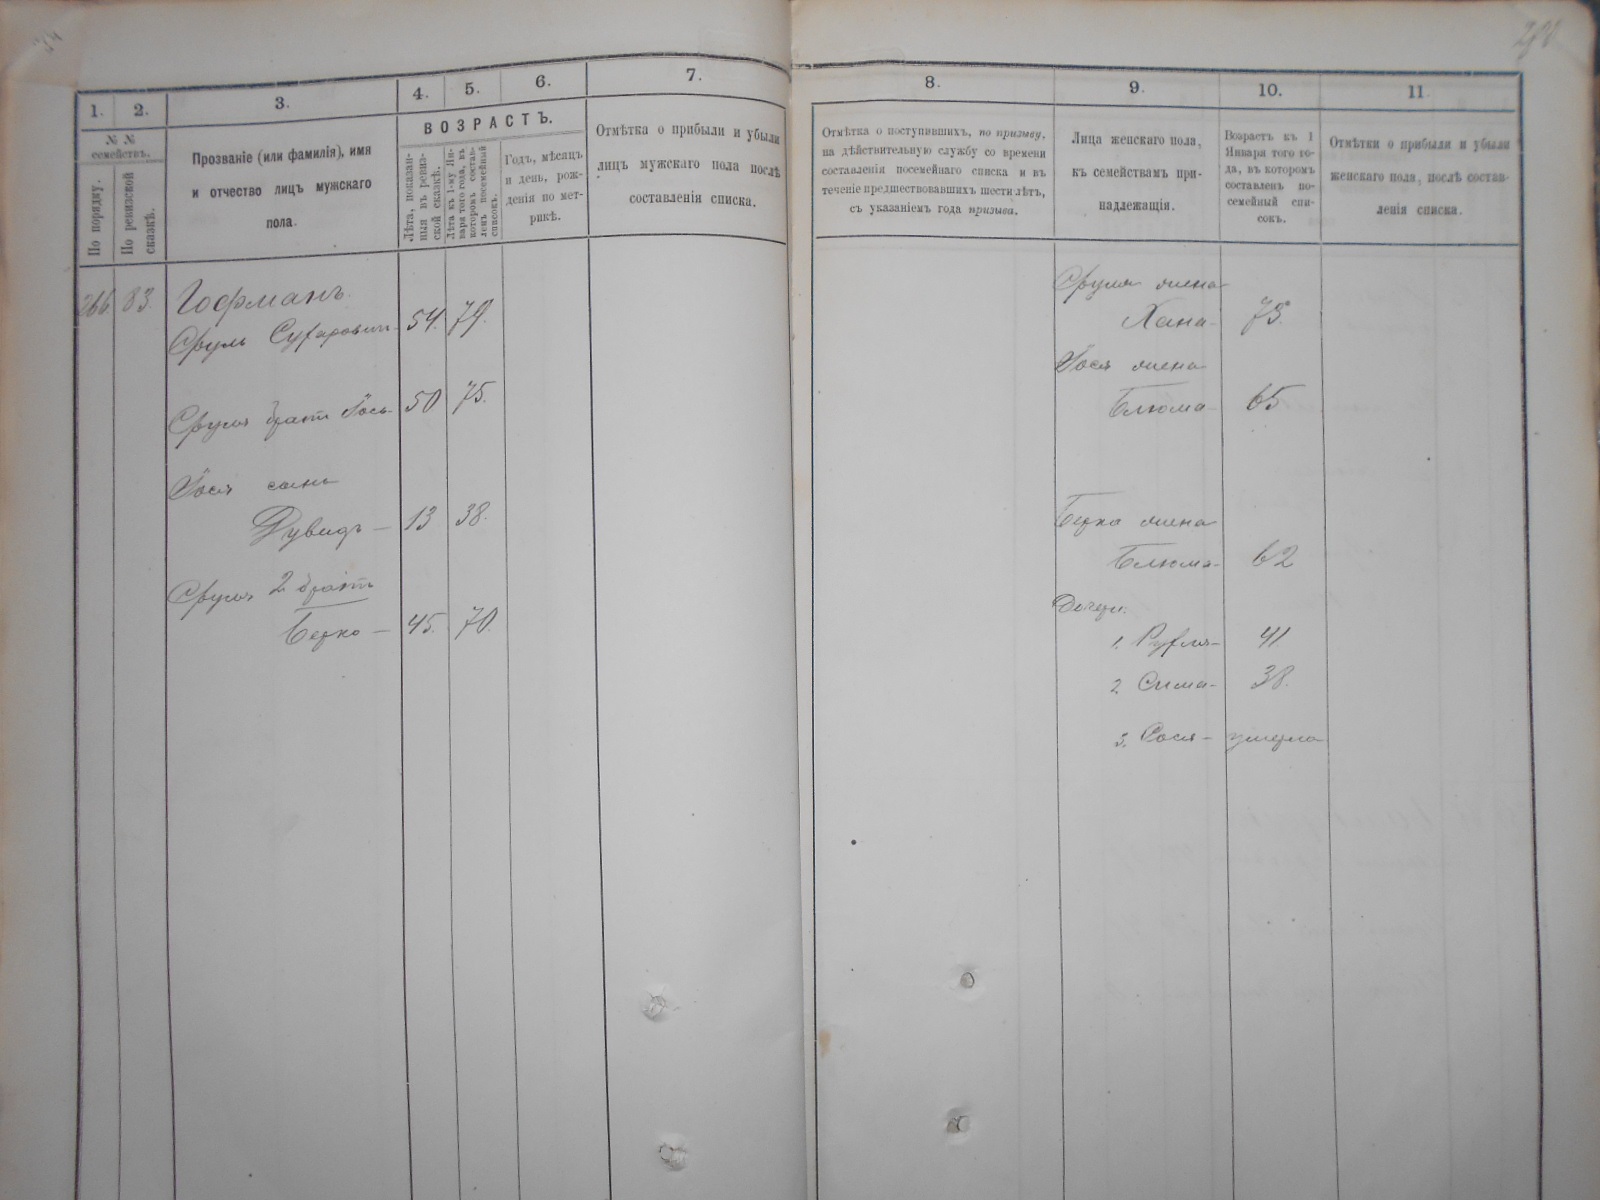 1.
2.
3.
4.
5.
6.
7.
№ №
семействъ.
По порядку.
По ревизской
сказкѣ.
Прозваніе (или фамилія), имя
и отчество лицъ мужскаго
пола.
ВОЗРАСТЪ.
Лѣта, показан-
ныя въ ревиз-
ской сказкѣ.
Лѣта къ 1-му Ян-
варя того года, въ
которомъ состав-
ленъ посемейный
списокъ.
Годъ, мѣсяцъ
и день, рож-
денія по мет-
рикѣ.
Отмѣтка о прибыли и убыли
лицъ мужскаго пола послѣ
составленія списка.
266. 83. Гофманъ
Сруль 54. 79.
Сруля братъ Іось 50 75.
Іося сынъ
Дувидъ — 13 38.
Сруля 2 братъ
Берко — 45. 70.
8.
9.
10.
11.
Отмѣтка о поступившихъ, по призыву,
на дѣйствительную службу со времени
составленія посемейнаго списка и въ
теченіе предшествовавшихъ шести лѣтъ,
съ указаніемъ года призыва.
Лица женскаго пола,
къ семействамъ при-
надлежащія.
Возрастъ къ 1
Января того го-
да, въ которомъ
составленъ по-
семейный спи-
сокъ.
Отмѣтки о прибыли и убыли
женскаго пола, послѣ состав-
ленія списка.
Сруля жена
Хана - 75.
Іося жена
Блюма - 65
Берко жена
Блюма - 62
Дочери:
1. Рухля - 41
2 Сима - 38.
3. Рося - умерла